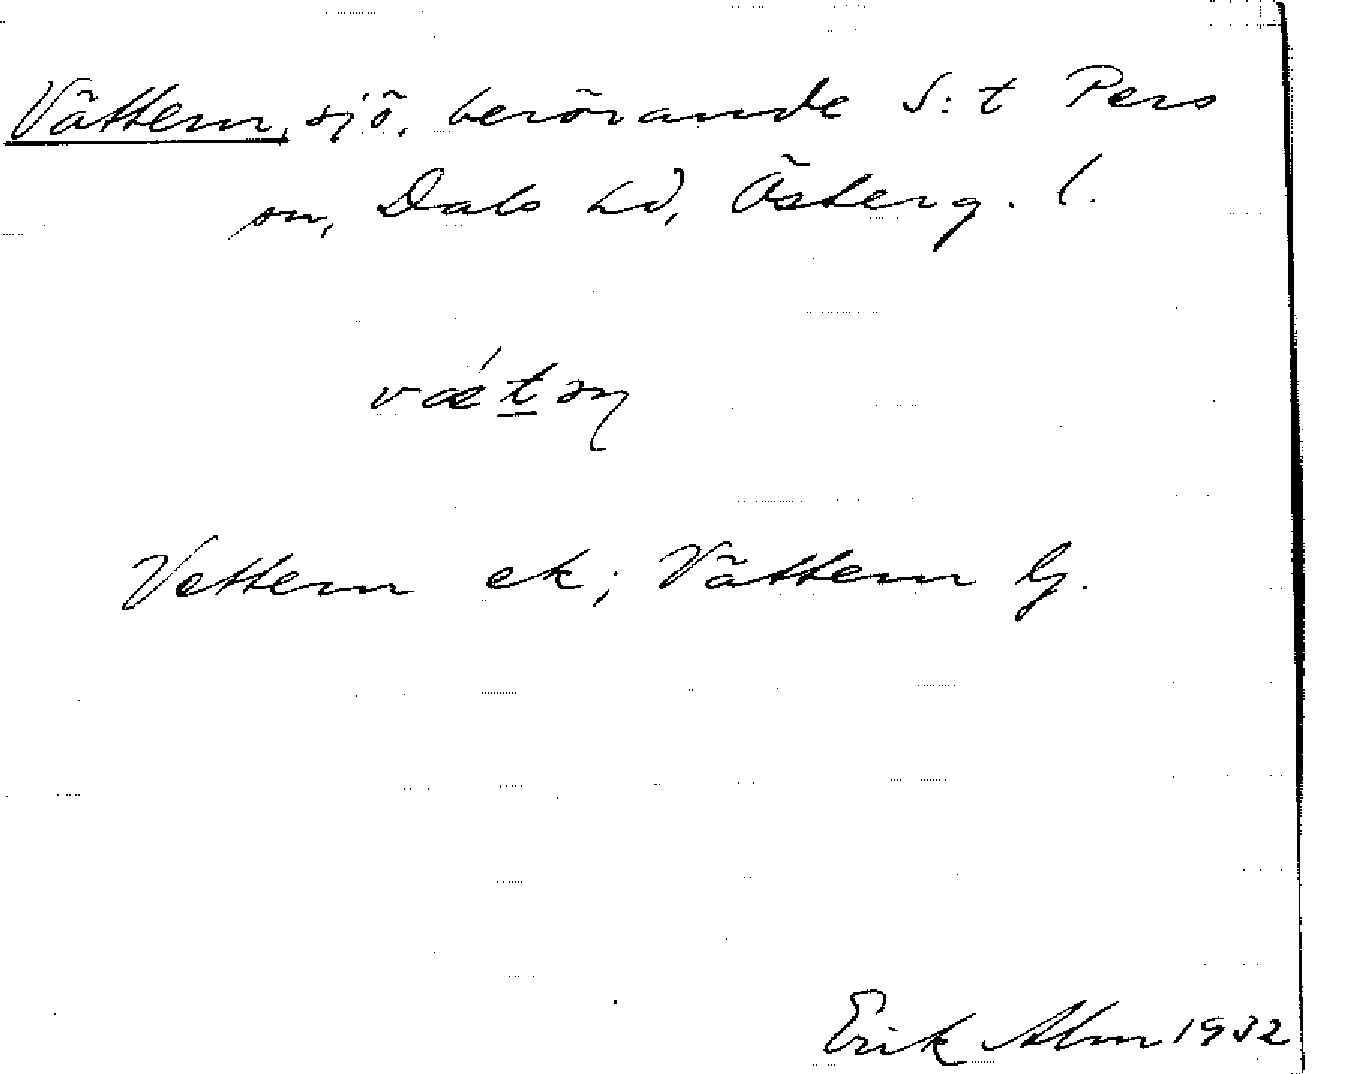 Vättern, sjö, berörande S:t Pers
sn, Dals hd, Österg. l.
væ´tɘɳ
Vettern ek; Vättern Gg.
Erik Alm 1932